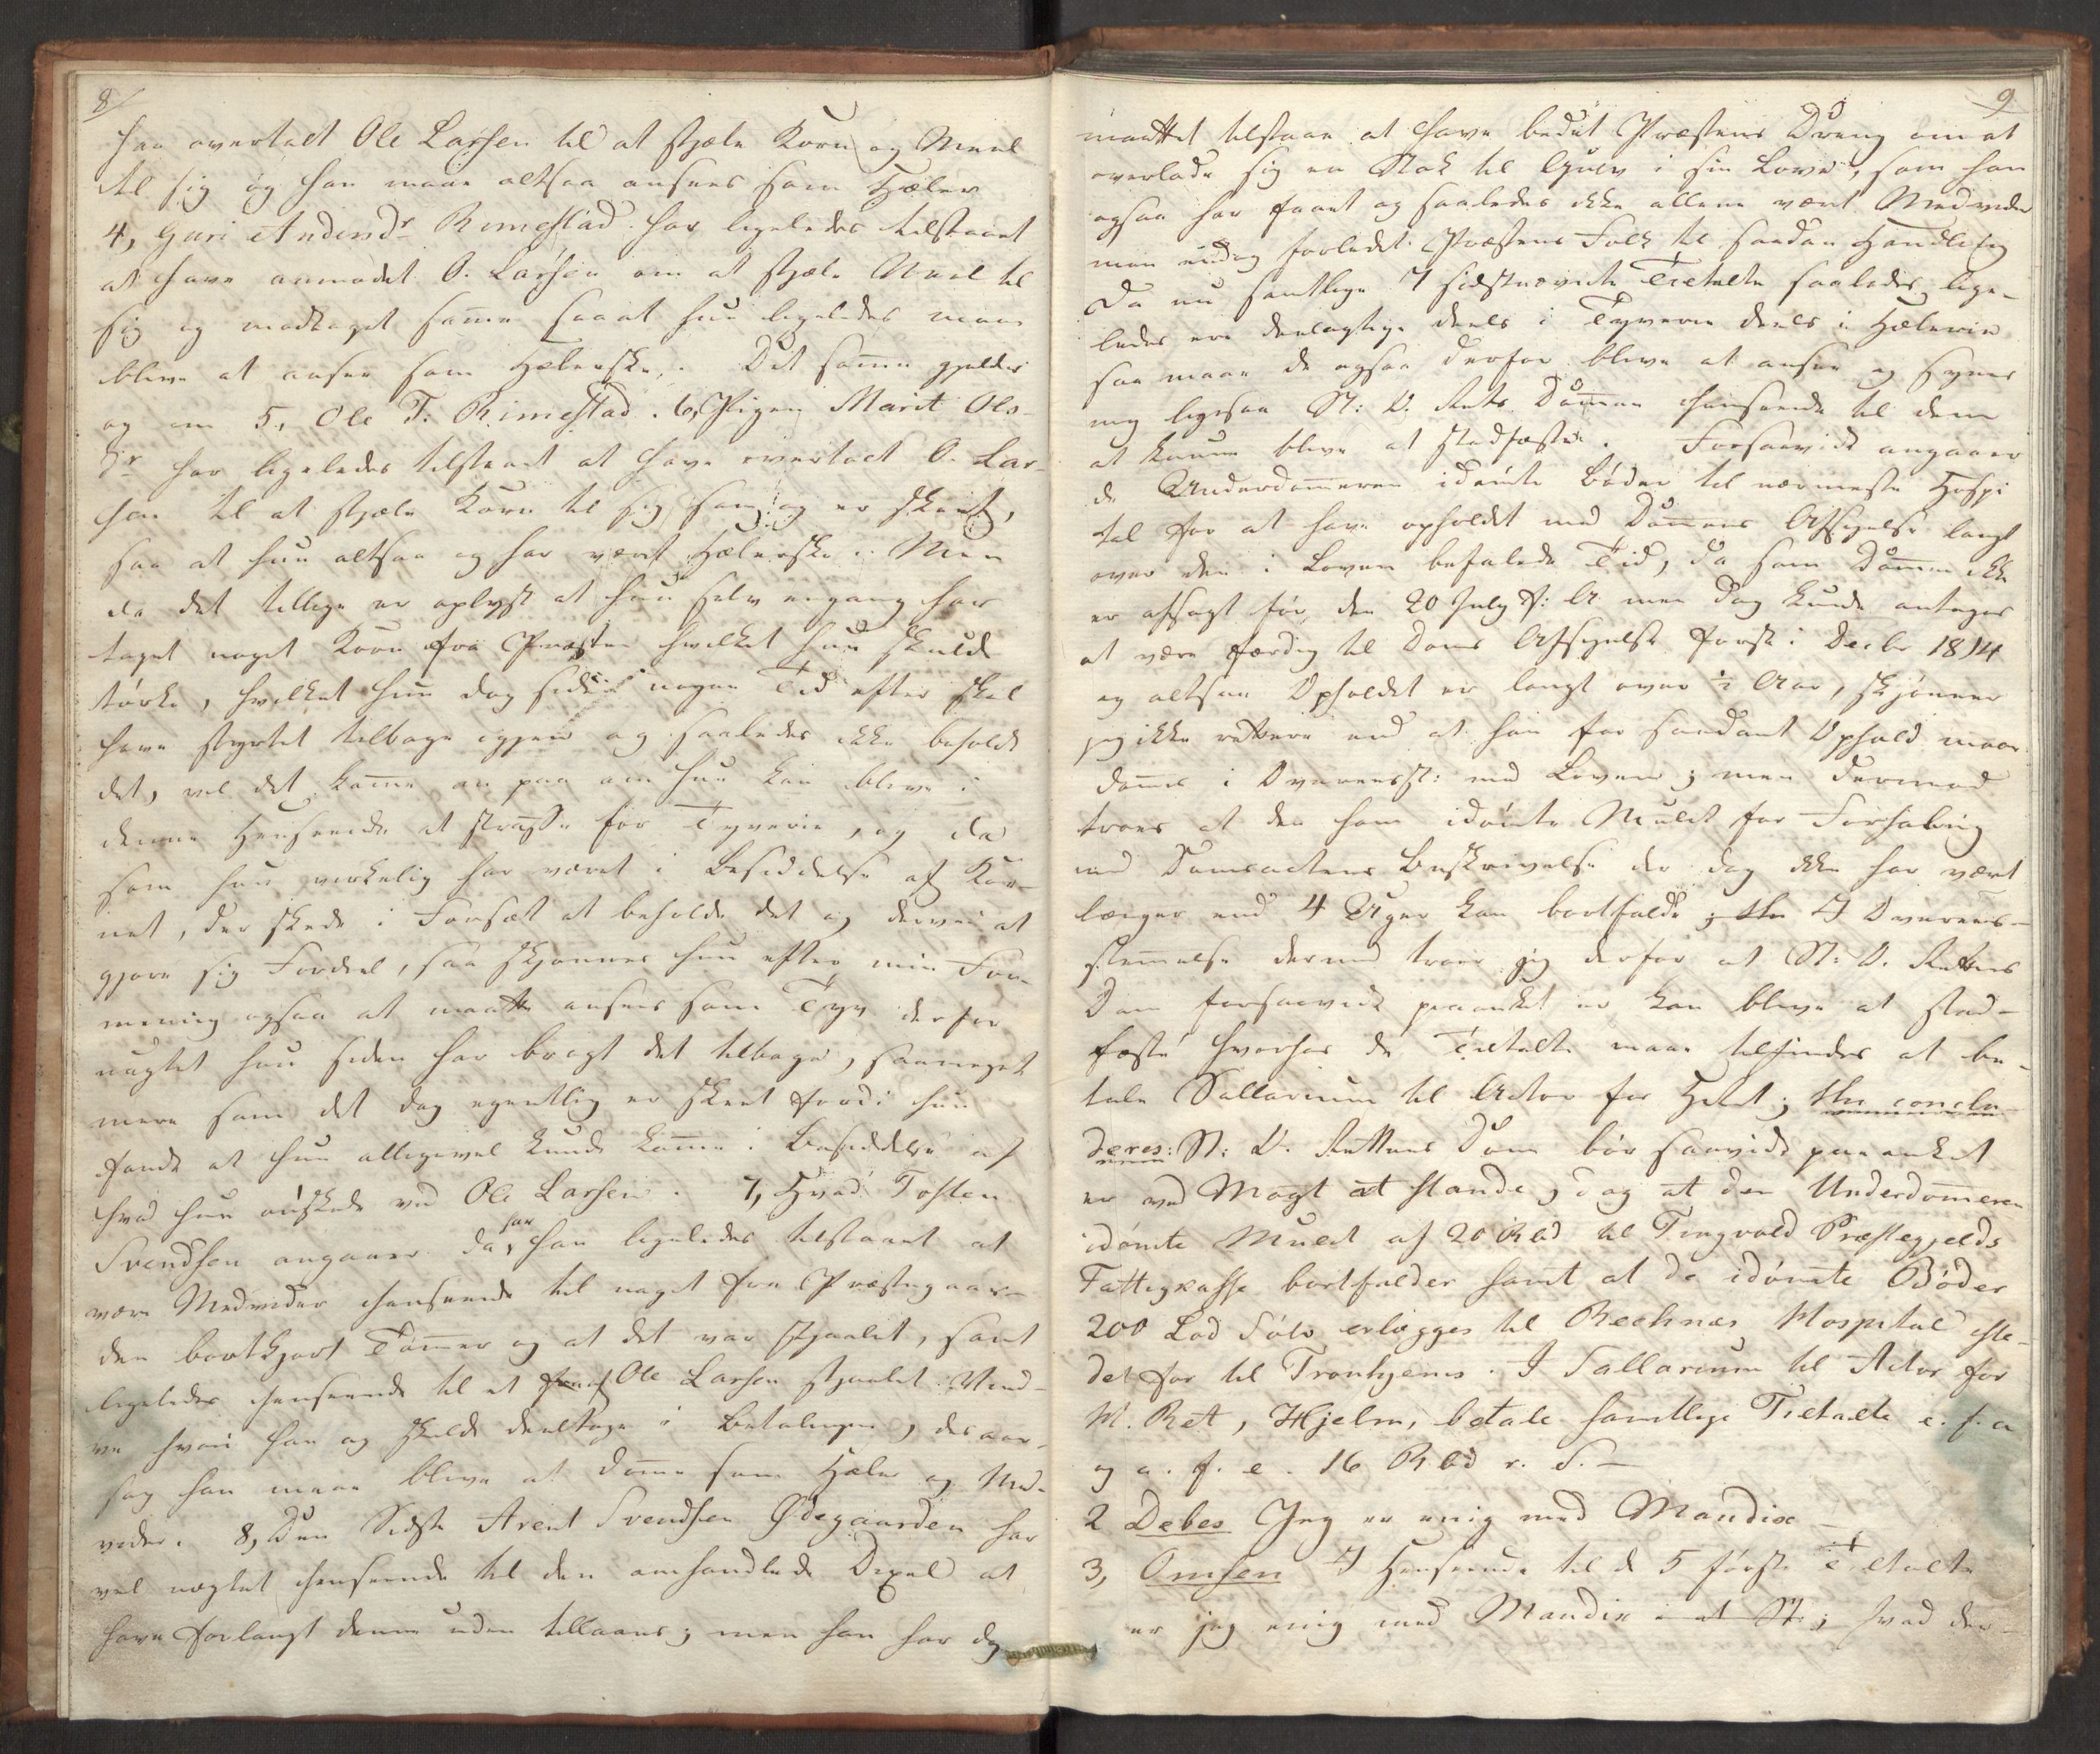 8/
har overtalt Ole Larsen til at stjæle Korn og Meel
til sig og han maae altsaa ansees som Hæler
4, Guri Andersdr Rimestad har ligeledes tilstaaet
at have anmodet O. Larsen om at stjæle Meel til
sig og modtaget samme saa at hun ligeledes maae
blive at ansee som Hælerske. Det samme gjelder
og om 5, Ole T. Rimestad. 6, Pigen Marit Ols-
dr har ligeledes tilstaaet at have overtalt O. Lar-
sen til at stjæle Korn til sig som og er skeet,
saa at hun altsaa og har vært Hælerske. Men
da det tillige er oplyst at hun selv engang har
taget noget Korn fra Præsten hvilket hun skulde
tørke, hvilket hun dog siden nogen Tid efter skal
have styrtet tilbage igjen og saaledes ikke beholdt
det, vil det komme an paa om hun kan blive i
denne Henseende at straffe for Tyverie, og da
som hun virkelig har været i Besiddelse af Kor-
net, der skede i Forsæt at beholde det og derved at
gjøre sig Fordeel, saa skjønnes hun efter min For-
mening ogsaa at maatte ansees som Tyv derfor
uagtet hun siden har bragt det tilbage, saameget
mere som det dog egentlig er skeet fordi hun
fandt at hun alligevel kunde komme i Besiddelse af
hvad hun ønskede ved Ole Larsen. 7, Hvad Tosten
Svendsen angaaer da har han ligeledes tilstaaet at
være Medvider henseende til noget fra Præstegaar-
den bortkjørt Tømmer og at det var stjaalet, samt
ligeledes henseende til et af Ole Larsen stjaalet
hvori han og skulde deeltage i Betalingen, des aar-
sag han maae blive at dømme som Hæler og Med-
vider. 8, Den Sidste Arent Svendsen Ødegaarden har
vel nægtet henseende til den omhandlede Dexel at
have forlangt denne uden tillaans; men han har dog
9
maattet tilstaae at have bedet Præstens Dreng om at
overlade sig en Stok til Gulv i sin Love, som han
ogsaa har faaet og saaledes ikke allene vært Medvider
men endog forledet Præstens Folk til saadan Handling
Da nu samtlige 7 sidstnævnte Tiltalte saaledes lige-
ledes ere deelagtige deels i Tyverie deels i Hælerie
saa maae de ogsaa derfor blive at ansee og synes
mig ligesaa St: O. Rets Dommen henseende til dem
at kunne blive at stadfæste. Forsaavidt angaaer
de Underdommeren idømte Bøder til nærmeste Hospi
tal for at have opholdt med Dommens Afsigelse langt
over den i Loven befalede Tid, da som Dommen ikke
er afsagt før den 20 July f: A. men dog kunde antages
at være færdig til Doms Afsigelse først i Decbr 1814
og altsaa Opholdet er langt over ½ Aar, skjønner
jeg ikke rettere end at han for saadant Ophold maae
dømmes i Overeensst: med Loven; men dermod
troes at den ham idømte Mulct for Forhaling
med Domsactens Beskrivelse der dog ikke har vært
længer end 4 Uger kan bortfalde; I Overeens-
stemmelse dermed troer jeg derfor at St: O. Rettens
Dom forsaavidt paaanket er kan blive at stad-
fæste hvorhos de Tiltalte maae tilfindes at be-
tale Sallarium til Actor for Høiest; thi conclu-
deres: St: O. Rettens Dom bør saavidt paaanket
er ved Magt at stande, dog at den Underdommeren
idømte Mulct af 20 Rbd til Tingvold Præstegjelds
Fattigkasse bortfalder samt at de idømte Bøder
200 Lod Sølv erlægges til Reeknæs Hospital iste-
det for til Tronhjems. I Sallarium til Actor for
H. Ret, Hjelm, betale samtlige Tiltalte e. f. a
og a. f. e. 16 Rbd r. S. -
2 Debes Jeg er enig med Mandix -
3, Omsen I Henseende til de 5 første Tiltalte
er jeg enig med Mandix; hvad der-